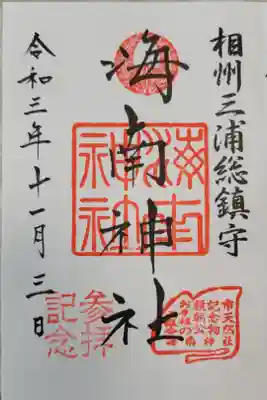 相州三浦総鎮守
海南神社
令和三年十一月三日
海南神社
参拝記念
市天然記念物